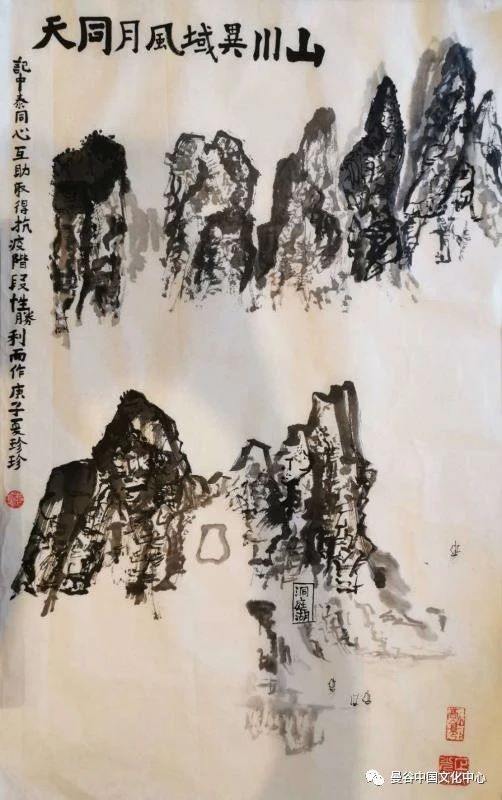 山川異域風月同天
記中泰同心互助取得抗疫階段性勝利而作庚子夏珍珍
曼谷中国文化中心